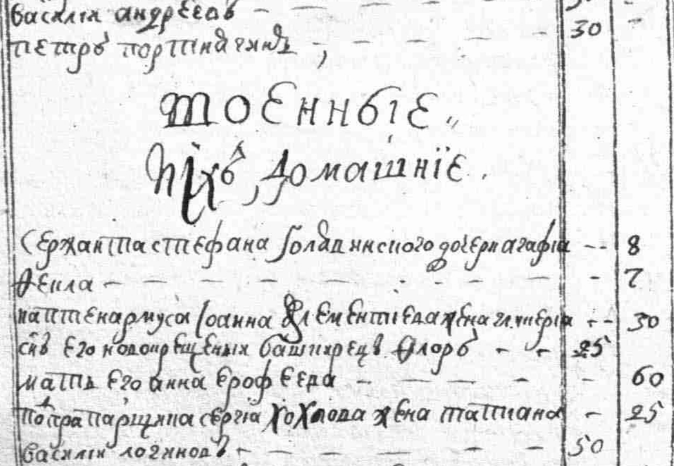 василїи андреевъ 30
петръ портнягинъ
военныіе
и ихъ домашнїе.
Сержанта стефана дочерь агафіа 8
Ѳекла 7
каптенармуса Іоанна клементиева жена гликеріа 30
снъ его новокрещеныи башкирецъ флоръ 25
мать его анна ерофеева 60
сергіа хохлова жена татиана 25
василіи логиновъ 50